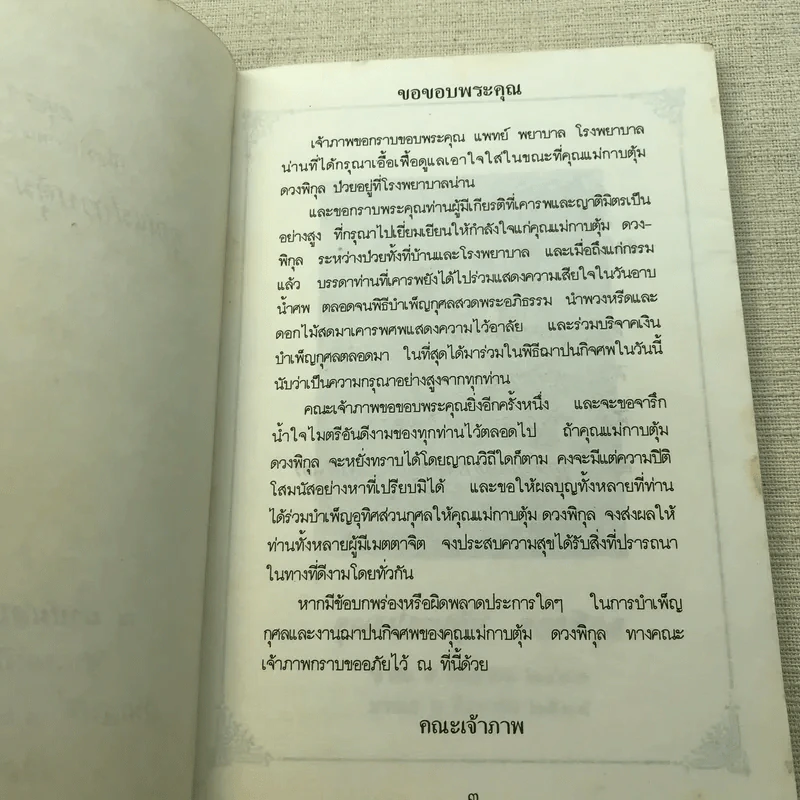 ขอขอบพระคุณ
เจ้าภาพขอกราบขอบพระคุณ แพทย์ พยาบาล โรงพยาบาล
น่านที่ได้กรุณาเอื้อเฟื้อดูแลเอาใจใส่ในขณะที่คุณแม่กาบตุ้ม
ดวงพิกุล ป่วยอยู่ที่โรงพยาบาลน่าน
และขอกราบพระคุณท่านผู้มีเกียรติที่เคารพและญาติมิตรเป็น
อย่างสูง ที่กรุณาไปเยี่ยมเยียนให้กำลังใจแก่คุณแม่กาบตุ้ม ดวง-
พิกุล ระหว่างป่วยทั้งที่บ้านและโรงพยาบาล และเมื่อถึงแก่กรรม
แล้ว บรรดาท่านที่เคารพยังได้ไปร่วมแสดงความเสียใจในวันอาบ
น้ำศพ ตลอดจนพิธีบำเพ็ญกุศลสวดพระอภิธรรม นำพวงหรีดและ
ดอกไม้สดมาเคารพศพแสดงความไว้อาลัย และร่วมบริจาคเงิน
บำเพ็ญกุศลตลอดมา ในที่สุดได้มาร่วมในพิธีฌาปนกิจศพในวันนี้
นับว่าเป็นความกรุณาอย่างสูงจากทุกท่าน
คณะเจ้าภาพขอขอบพระคุณยิ่งอีกครั้งหนึ่ง และจะขอจารึก
น้ำใจไมตรีอันดีงามของทุกท่านไว้ตลอดไป ถ้าคุณแม่กาบตุ้ม
ดวงพิกุล จะหยั่งทราบได้โดยญาณวิถีใดก็ตาม คงจะมีแต่ความปิติ
โสมนัสอย่างหาที่เปรียบมิได้ และขอให้ผลบุญทั้งหลายที่ท่าน
ได้ร่วมบำเพ็ญอุทิศส่วนกุศลให้คุณแม่กาบตุ้ม ดวงพิกุล จงส่งผลให้
ท่านทั้งหลายผู้มีเมตตาจิต จงประสบความสุขได้รับสิ่งที่ปรารถนา
ในทางที่ดีงามโดยทั่วกัน
หากมีข้อบกพร่องหรือผิดพลาดประการใดๆ ในการบำเพ็ญ
กุศลและงานฌาปนกิจศพของคุณแม่กาบตุ้ม ดวงพิกุล ทางคณะ
เจ้าภาพกราบขออภัยไว้ ณ ที่นี้ด้วย
คณะเจ้าภาพ
๓